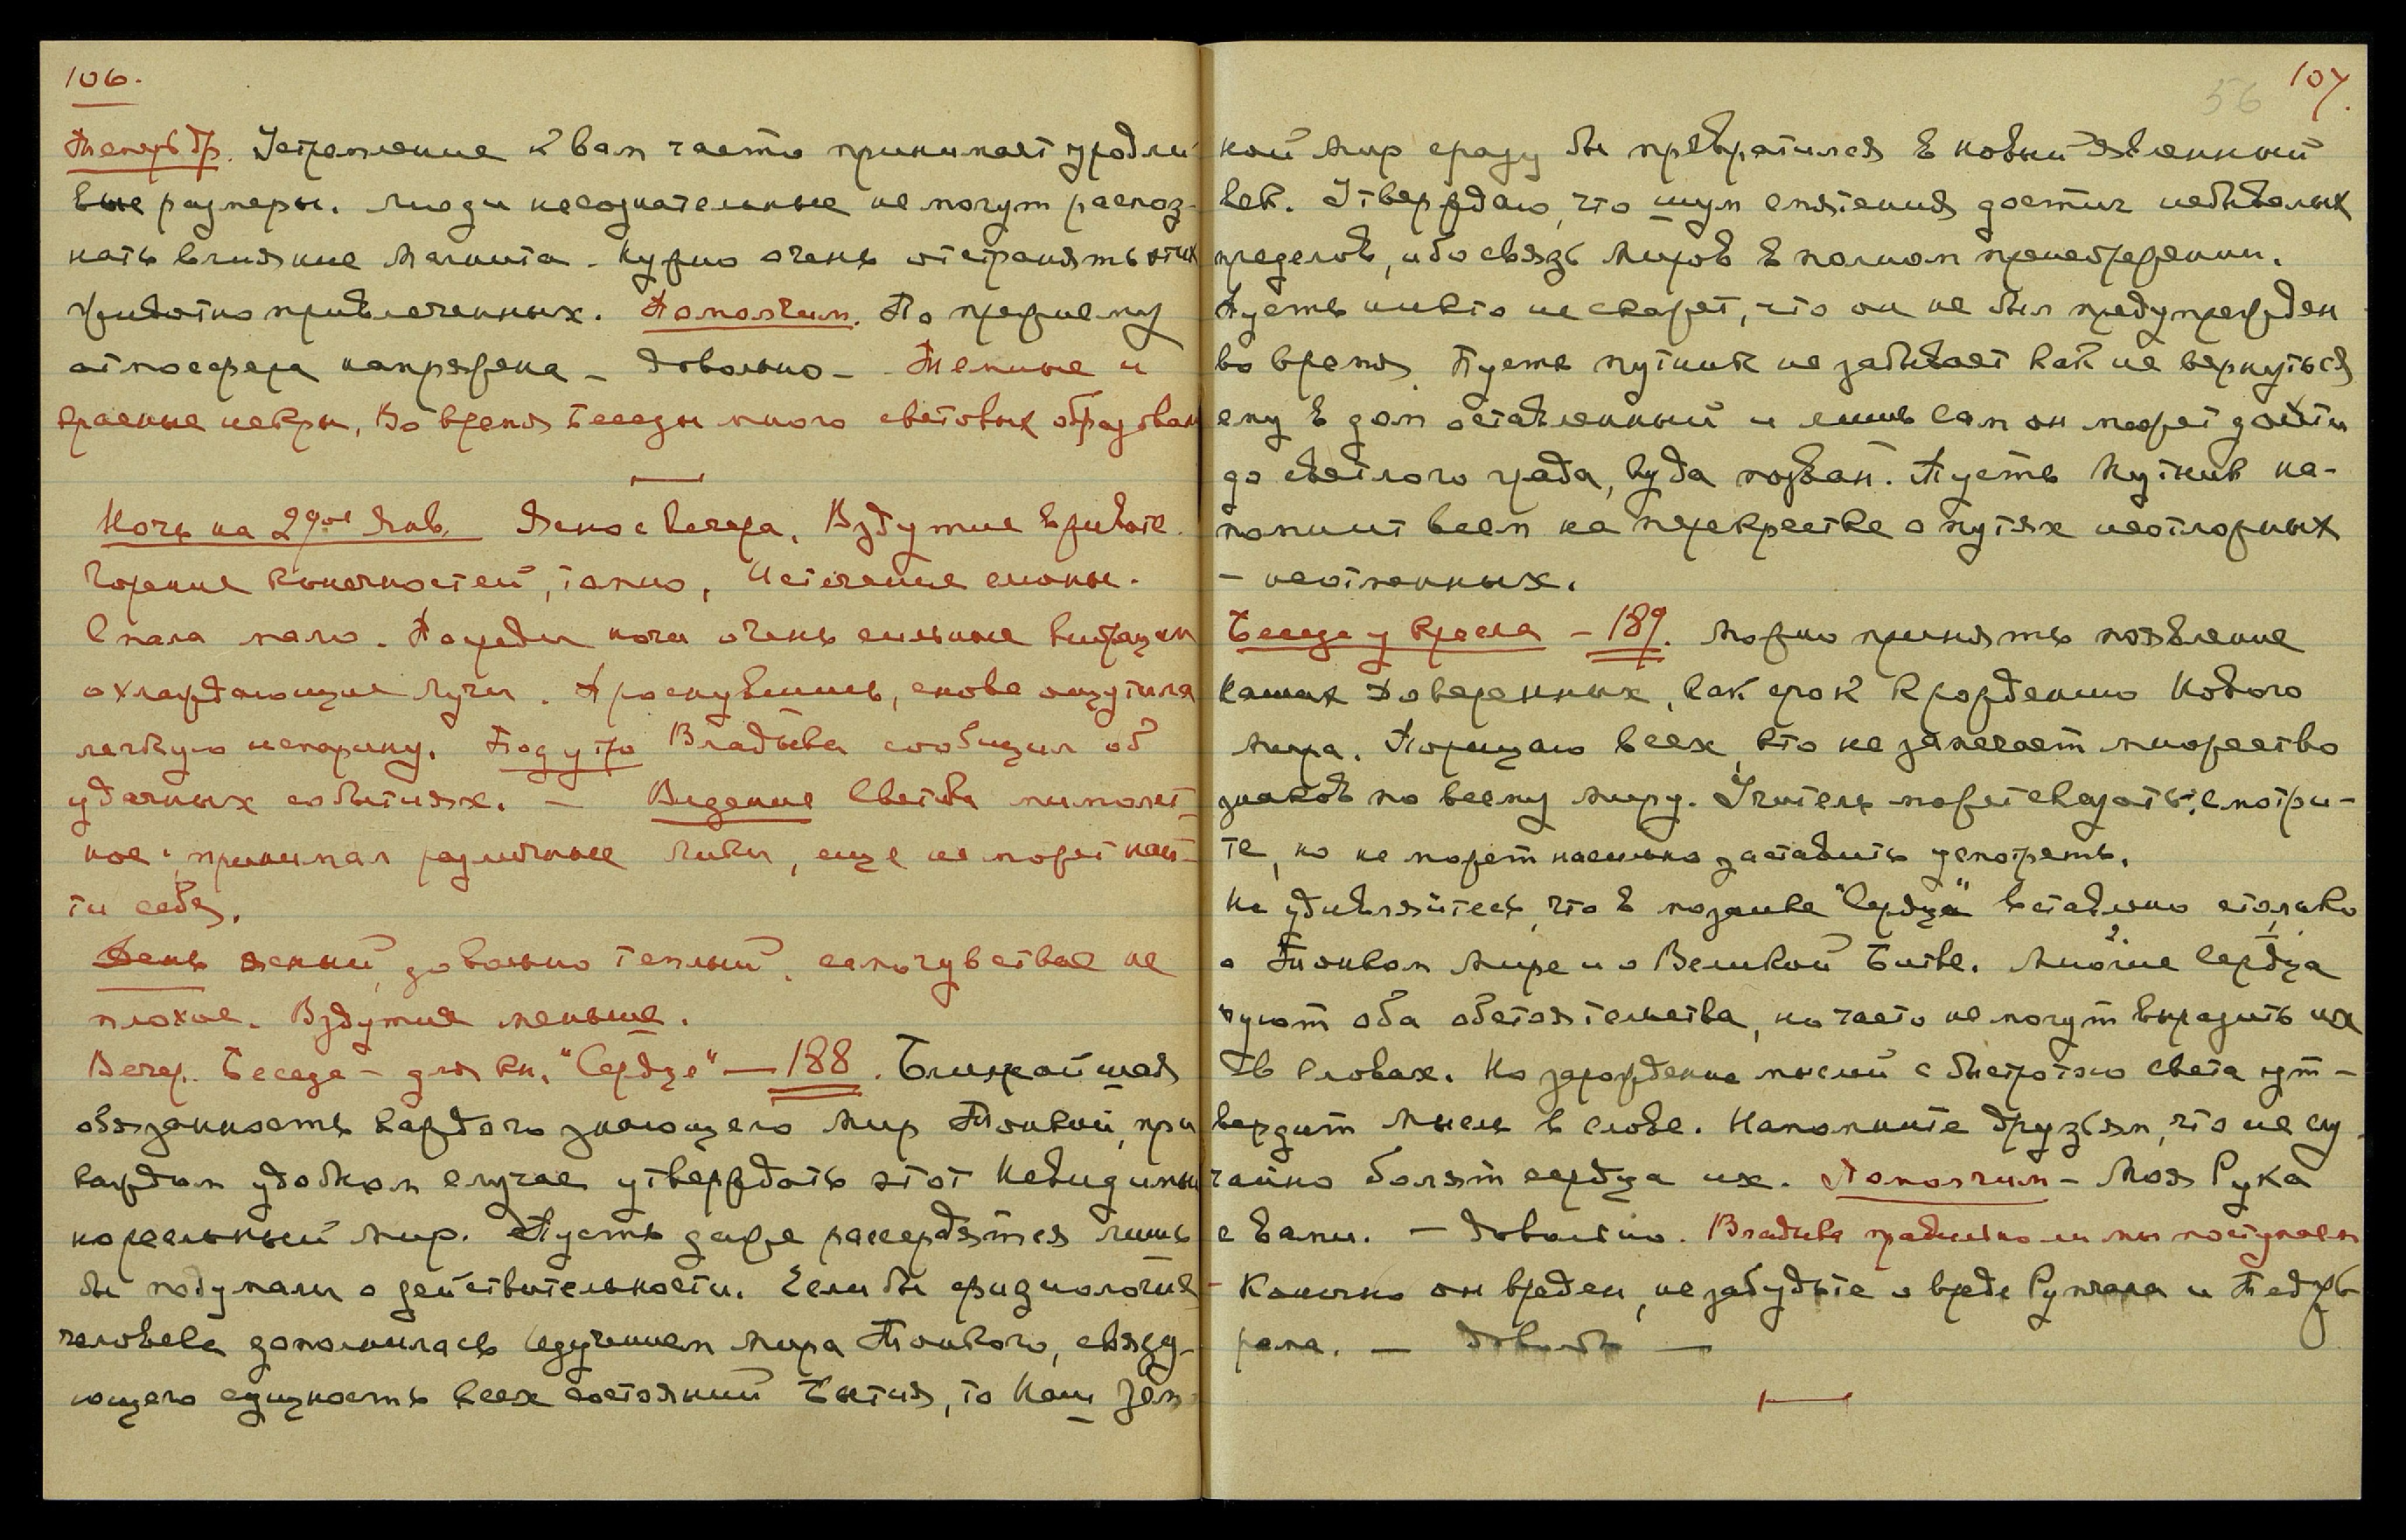 106.
Теперь др. Устремление к вам часто принимает уродли-
вые размеры. Люди несознательные не могут распоз-
нать влияние Магнита. Нужно очень отстранять этих
животно привлеченных. Помолчим. По прежнему
атмосфера напряжена – Довольно – Темные и
красные искры, Во время Беседы много световых образован
Ночь на 29ое Янв. Ясно с вечера. Вздутие в животе.
Горение конечностей, тошно, Истечение слюны.
Спала мало. Посреди ночи очень сильные вибрации
охлаждающие лучи. Проснувшись, снова ощутила
легкую испарину. Под утро Владыка сообщил об
удачных событиях. – Видение Света мимолет-
ное, принимал различные лики, еще не может най-
ти себя.
День ясный, довольно теплый, самочувствие не
плохое. Вздутия меньше.
Вечер. Беседа – для кн. "Сердце" – 188. Ближайшая
обязанность каждого знающего Мир Тонкий, при
каждом удобном случае утверждать этот Невидимый
но реальный Мир. Пусть даже рассердятся лишь
бы подумали о действительности. Если бы физиология
человека дополнилась изучением Мира Тонкого, связу-
ющего сущность всех состояний Бытия, то Наш Зем-
107.
56
ной Мир сразу бы превратился в новый Явленный
век. Утверждаю, что шум смятения достиг небывалых
пределов, ибо связь Миров в полном пренебрежении.
Пусть никто не скажет, что он не был предупрежден
во время. Пусть путник не забывает как не вернуться
ему в дом оставленный и лишь сам он может дойти
до светлого града, куда позван. Пусть путник на-
помнит всем на перекрестке о путях неотложных
– неотменных.
Беседа у Кресла – 189. Можно принять появление
наших Доверенных, как срок к рождению Нового
Мира. Порицаю всех кто не замечает множество
знаков по всему миру. Учитель может сказать: смотри-
те, но не может насильно заставить усмотреть.
Не удивляйтесь, что в мозаике "Сердца" вставлено столько
о Тонком Мире и о Великой Битве. Многие Сердца
чуют оба обстоятельства, но часто не могут выразить их
в словах. Но зарождение мыслей с быстротою света ут-
вердит мысль в слове. Напомните друзьям, что не слу-
чайно болят сердца их. Помолчим – Моя Рука
с вами. – Довольно. Владыка правильно ли мы поступаем
– Конечно он вреден, не забудьте о вреде
– Довольно –